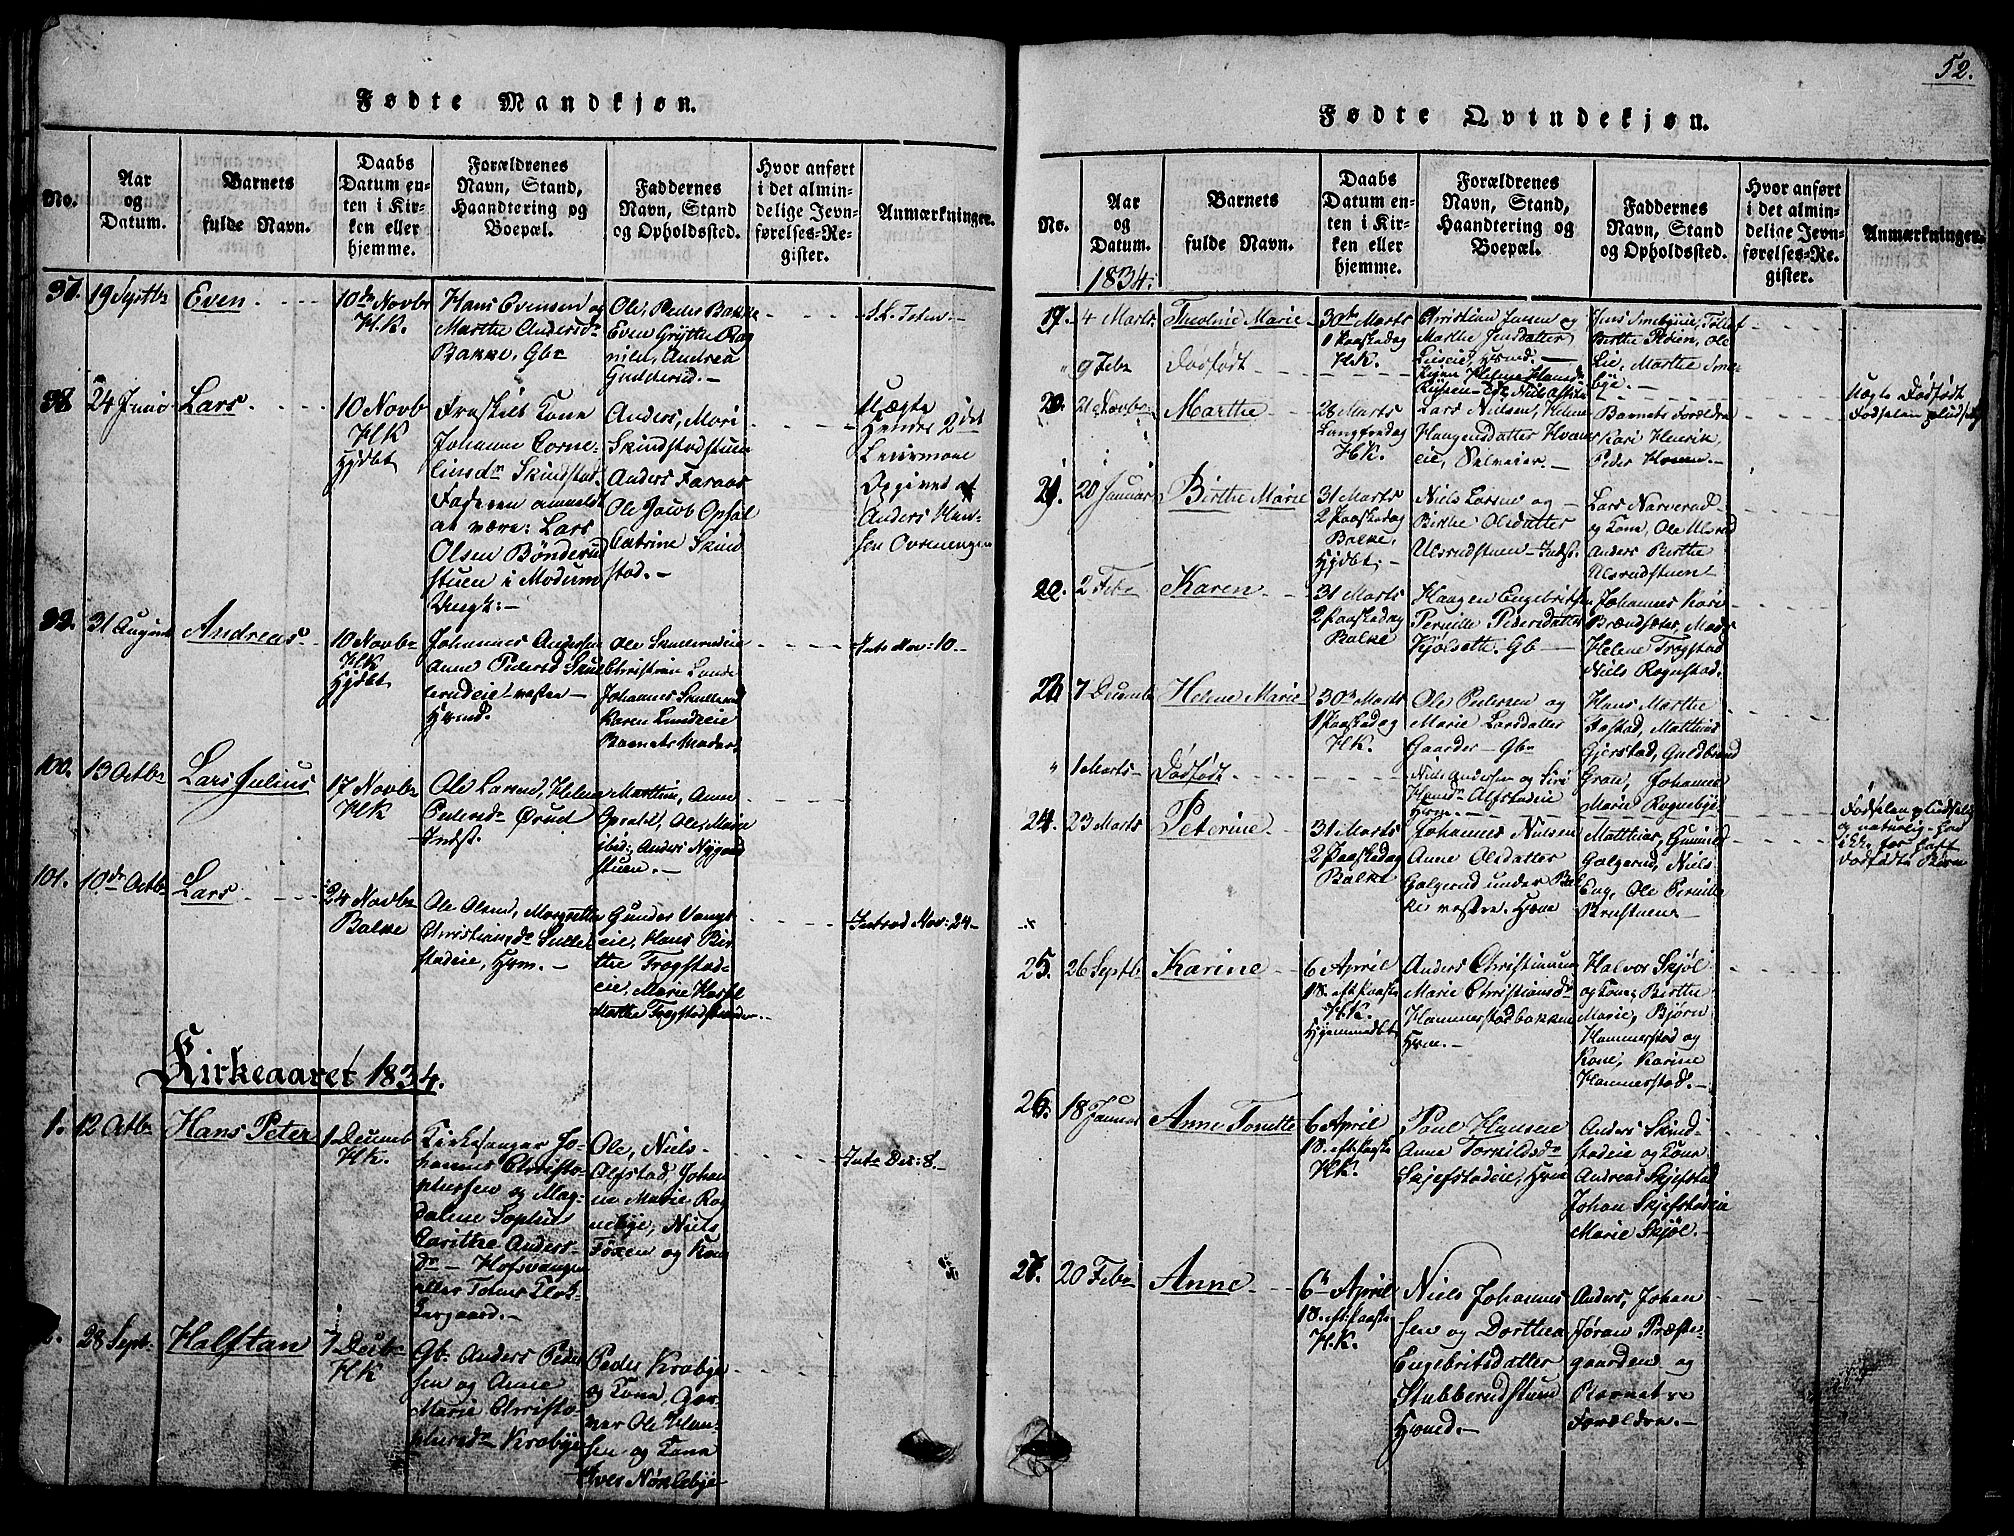 52.
Fødte Mandkjøn.
No.
Aar
og
Datum.
Barnets
fulde Navn.
Daabs
Datum en-
ten i Kir-
ken eller
hjemme.
Forældrenes
Navn, Stand,
Haandtering og
Boepæl.
Faddernes
Navn, Stand
og Opholdssted.
Hvor anført
i det almin-
delige Jevn-
førelses-Re-
gister.
Anmærkninger.
97. 19 Septbr
Even
10de Novbr
H.K.
Hans Evensen og
Marthe Andersdr
Bakke, Gbr
Ole, Peder Bakke
Even Grytte Rag
nild, Andrea
Gudderud.
98. 24 Junio
Lars
10 Novb
HK
Hjdbt
Fraskilt Kone
Johanne Corne-
liusdr Skindstad.
Faderen anmeldt
at være: Lars
Olsen Bønderud
stuen i Modum
Ungk:
Anders, Mari
Skindstadstuen
Anders Faraas
Ole Jacob Opsal
Catrine Skind
stad.
Uægte
Hendes 2det
Leiermaal
Opgivet af
Anders Han-
sen Overnengen
99. 31 August
Andreas
10 Novbr
HK
Hjdbt
Johannes Andersen
Anne Pedersd Skul
lerudeie vestre
Hmd.
Ole Skullerudeie
Christian Lunde
Johannes Skullerud
Karen Lundeeie
Barnets Moder.
Intr Nov: 10.
100. 13 Octbr
Lars Julius
17 Novbr
HK
Ole Larsen, Helene
Pedersdr Ørud
Indst.
Marthin, Anne
Gvaalt, Ole, Marie
ibid:, Anders Nygaard
stuen.
101. 10de Octbr
Lars
24 Novbr
Balke
Ole Olsen, Margrethe
Christiansdr Sulle
stadeie, Hvm.
Gunder Vangs
eie, Hans Bir-
the Trogstad-
eie, Marie
Marthe Trogstadstuen.
Introd Nov: 24
Kirkeaaret 1834.
1. 12 Octbr
Hans Peter
1 Decemb
H.K.
Kirkesanger Jo-
hannes Christo-
phersen og Mag-
dalene Sophie
Carithe Anders-
dr Hofsvangen
eller
Kergaard.
Ole, Niels
Alfstad, Johan
ne Marie Rog
nebye, Niels
Foxen og Kone
Intr Dec: 8
2. 28 Septbr
Halfstan
7 Decbr
HK
Gb. Anders Peder
sen og Anne
Marie Christo-
phersdr Krabye
Peder Krabye
og Kone, Gar-
ver Ole Han-
sen og Kone
Iver Nøklebye
Fødte Qvindekjøn.
No.
Aar
og
Datum.
1834.
Barnets
fulde Navn.
Daabs
Datum en-
ten i Kir-
ken eller
hjemme.
Forældrenes
Navn, Stand,
Haandtering og
Boepæl.
Faddernes
Navn, Stand
og Opholdssted.
Hvor anført
i det almin-
delige Jevn-
førelses-Re-
gister.
Anmærkninger.
19. 4 Marts
Theoline Marie
30de Marts
1 Paaskedag
H.K.
Christian Larsen og
Marthe Jensdatter
Lieeie, Hvmd.
Jens Smebyeie,
Birthe, Ole
Lie, Marthe Sme-
bye.
" 9 Febr
Dødfødt
20.
Marthe
28 Marts
Langfredag
H.K.
Lars Nielsen, Helene
Haagensdatter Hvams
eie, Selveier.
Barnets Forældre
Kari Henrik
Peder Hvam
Uægte Dødfødt
Fødselen pludselig
21. 20 Januar
Birthe Marie
31 Marts
2 Paaskedag
Balke,
Hjdbt.
Niels Larsen og
Birthe Olsdatter
Ulsrudstuen Indst.
Lars Narverud
og Kone, Ole Ulsrud
Anders Birthe
Ulsrudstuen
22. 2 Febr
Karen
31 Marts
2 Paaskedag
Balke
Haagen Engebritsen
Pernille Pedersdatter
Kjølsette. Gb
Johannes Kari
Brændsæter, Mads
Helene Trogstad
Niels Rognstad.
23. 7 Decembr
Helene Marie
30te Marts
1 Paaskedag
H.K.
Ole Pedersen og
Marie Larsdatter
Gaarder Gbr
Hans Marthe
Matthias
Gjerstad, Guldbrand
Gran, Johanne
Marie Rognebye
" 1 Marts
Dødfødt
Niels Andersen og Siri
Hansdr Alfstadeie
Hvm.
Fødselen pludselig
og naturlig
Dødfødte Børn
24. 23 Marts
Peterine
31 Marts
2 Paaskedag
Balke
Johannes Nielsen
Anne Olsdatter
Galgerud under Bal-
ke vestre. Hvm
Matthias, Gunild
Galgerud, Niels
Eng, Ole Pernille
Brustuen
25. 26 Septb
Karine
6 April
1S. eft: Paaske
H.K.
Hjemmedbt
Anders Christiansen
Marie Christiansdr
Hammerstadbakken
Hvm.
Halvor Skjøl
og Kone, Birthe
Marie, Bjørn
Hammerstad og
Kone, Karine
Hammerstad.
26. 18 Januar
Anne Tonette
6 April
1S. eft: Paaske
H.K.
Paul Hansen
Anne Torkildsdr
Skjefstadeie, Hvm
Anders Skind-
stadeie og Kone
Andreas Skjefstad
Johan Skjefstadeie
Marie Skjøl.
27. 20 Febr
Anne
6te April
1S. eft: Paaske
H.K.
Niels Johannes
sen og Dorthea
Engebritsdatter
Stubberudstuen
Hvmd.
Anders, Johan
Jøran Præste-
gaarden og
Barnets
Forældre.